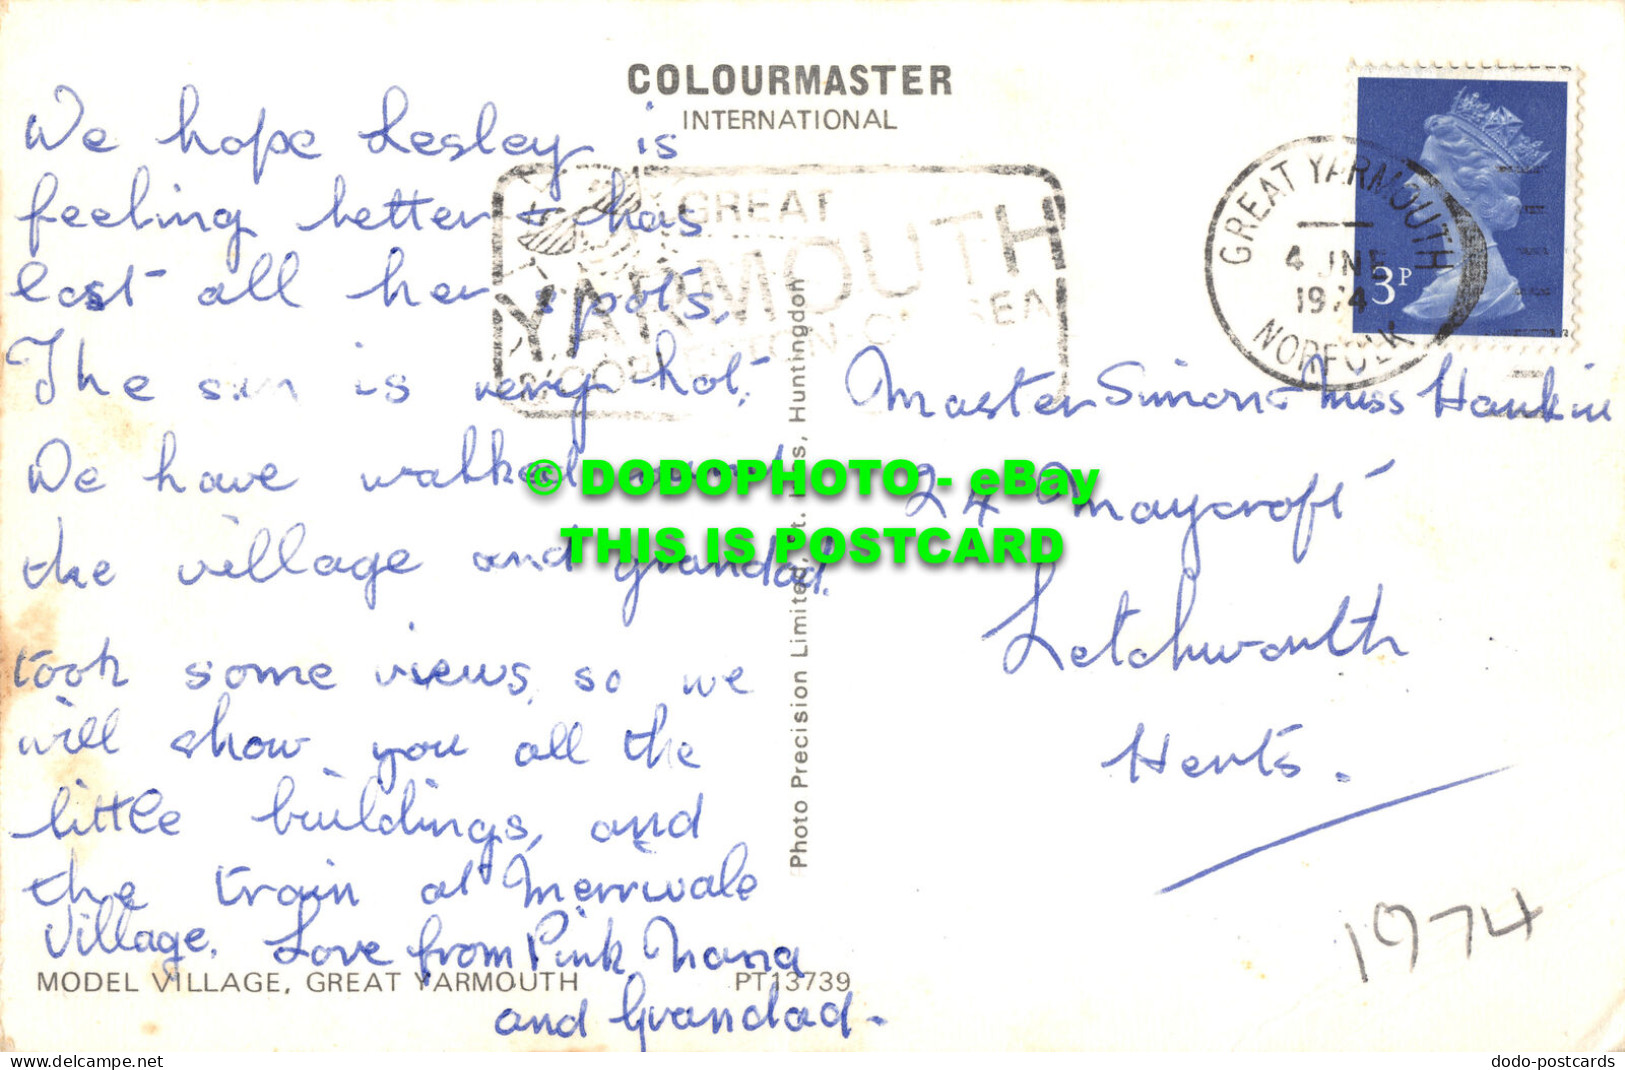 COLOURMASTER
INTERNATIONAL
We hope Lesley is
feeling better & has
lost all her spots,
The sun is very hot,
We have walked round
the village and grandad
took some views, so we
will show you all the
little buildings, and
the train at Merrivale
Village. Love from Pink Nana
and Grandad.
MODEL VILLAGE, GREAT YARMOUTH
PT13739
GREAT
YARMOUTH
GREAT YARMOUTH
4 JNE
1974
NORFOLK
3P
Master Simon & Miss Hankin
24 Maycroft
Letchworth
Herts.
1974
Photo Precision Limited, St. Ives, Huntingdon
© DODOPHOTO - eBay
THIS IS POSTCARD
Website: delcampe.net
dodo-postcards